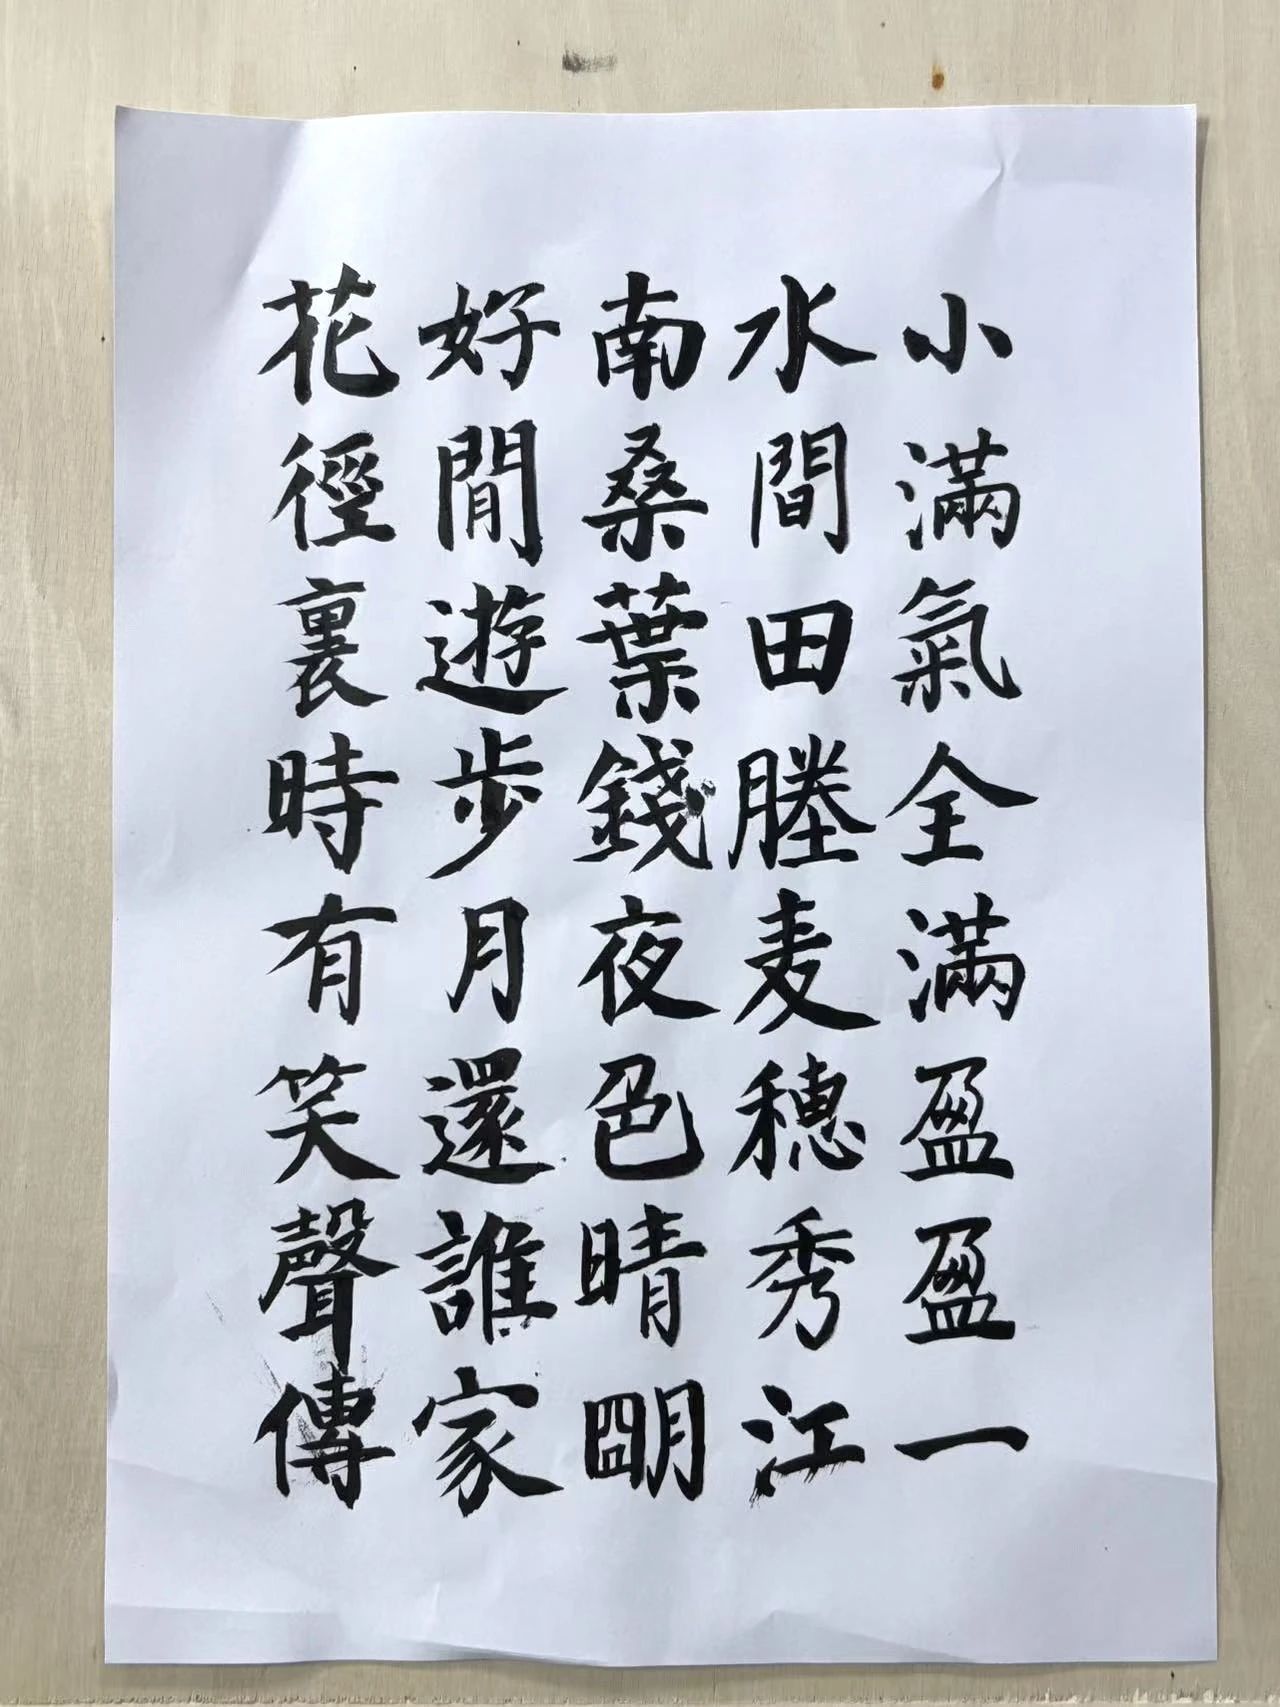 小滿氣全滿盈盈一
水間田塍麦穗秀江
南桑葉錢夜色晴明
好閒遊步月還誰家
花徑裏時有笑聲傳